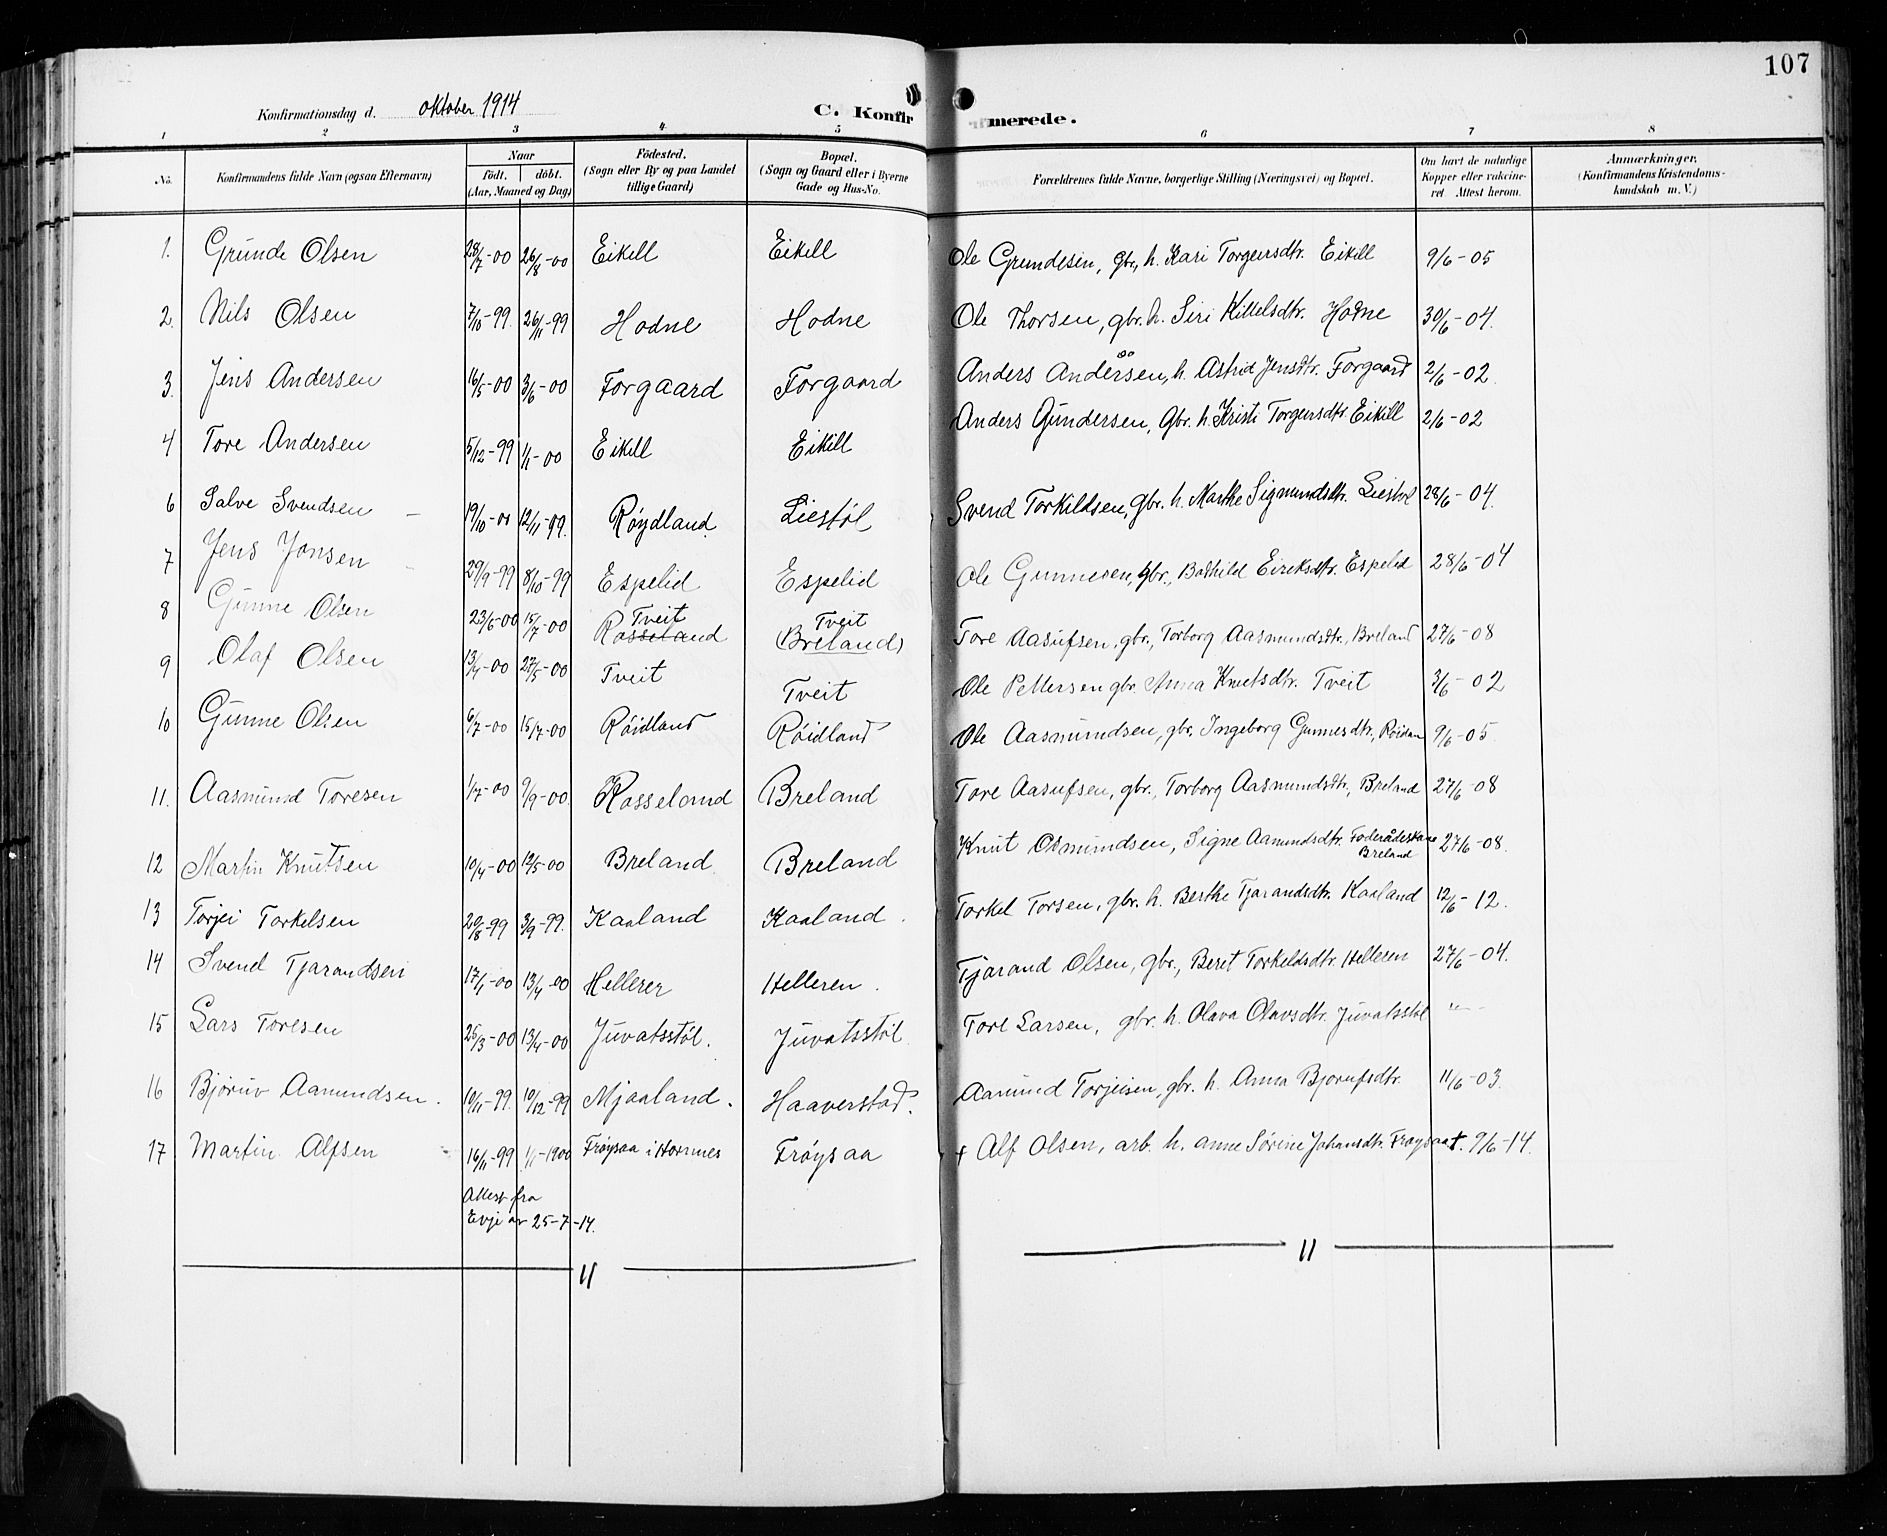 107
Konfirmationsdag d. oktober 1914 C. Konfirmerede.
1 2 3 4 5 6 7 8
No. Konfirmandens fulde Navn (ogsaa Efternavn) Naar født. døbt. (Aar, Maaned og Dag) Fødested. (Sogn eller By og paa Landet tillige Gaard) Bopæl. (Sogn og Gaard eller i Byerne Gade og Hus-No. Forældrenes fulde Navne, borgerlige Stilling (Næringsvei) og Bopæl. Om havt de naturlige Kopper eller vakcineret Attest herom. Anmærkninger. (Konfirmandens Kristendomskundskab m. V.)
1. Grunde Olsen 28/7-00 26/8-00 Eikill Eikill Ole Grundesen, gbr, h. Kari Torgersdtr. Eikill 9/6-05
2. Nils Olsen 7/10-99 26/11-99 Hodne Hodne Ole Thorsen, gbr. h. Siri Kittelsdtr. Hodne 30/6-04.
3. Jens Andersen 16/5-00 3/6-00 Forgaard Forgaard Anders Andersen, h. Astrid Jensdtr. Forgaard 2/6-02
4 Tore Andersen 5/12-99 1/1-00 Eikill Eikill Anders Gundersen, Gbr. h. Kristi Torgersdtr. Eikill 2/6-02
6 Salve Svendsen 19/10-00 12/11-99. Røydland Liestøl Svend Torkildsen, gbr. h. Marthe Sigmundsdtr. Liestøl 28/6-04.
7 Jens Jonsen 29/9-99 8/10-99 Espelid Espelid Ole Gunnesen, gbr., Bothild Eireksdtr. Espelid 28/6-04
8 Gunne Olsen 23/6-00 15/7-00 Tveit Rosseland Tveit (Breland) Tore Aasufsen, gbr., Torborg Aasmundsdtr., Breland 27/6-08
9 Olaf Olsen 13/4-00 27/5-00 Tveit Tveit Ole Pettersen gbr. Anna Knutsdtr. Tveit 3/6-02
10 Gunne Olsen 6/7-00 15/7-00 Røidland Røidland Ole Aasmundsen, gbr. Ingeborg Gunnesdtr., Røidlan 9/6-05.
11. Aasmund Toresen 1/7-00 9/9-00. Rosseland Breland Tore Aasufsen, gbr., Torborg Aasmundsdtr., Breland 27/6-08
12 Martin Knutsen 10/4-00 12/5-00 Breland Breland Knut Osmundsen, Signe Aamundsdtr. Føderådeskone Breland 27/6-08.
13 Torjei Torkelsen 20/8-99 3/9-99. Kaaland Kaaland. Torkel Torsen, gbr. h. Berthe Tjarandsdtr. Kaaland 12/6-12.
14 Svend Tjarandsen 17/1-00 13/4-00 Hellerer Helleren. Tjarand Olsen, gbr., Beret Torkeldsdtr. Helleren 27/6-04.
15 Lars Toresen 25/3-00 13/4-00 Juvatsstøl. Juvatsstøl Tore Larsen, gbr. h. Olava Olavsdtr. Juvatsstøl -"-
16 Bjøruv Aamundsen. 10/11-99. 10/12-99 Mjaaland. Haaverstad. Aamund Torjeisen, gbr. h. Anna Bjorufsdtr. 11/6-03.
17 Martin Alfsen 16/11-99 1/1-1900 Frøysaa i Hornnes Frøysaa + Alf Olsen, arb. h. Anne Sørine Johansdtr. Frøysaa+. 9/6-14.
Attest fra
Evje av 25-7-14.
— 11 — — 11 —